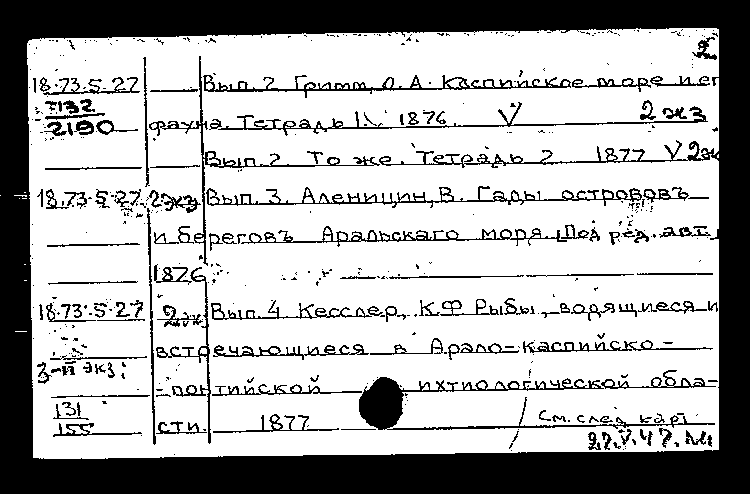 2
18.73.5.27 Вып. 2 Гримм, О. А. Каспийское море и ег
7132
2190 фауна. Тетрадь 1876. V 2 экз
Вып. 2. То же. Тетрадь 2 1877 V 2эк
18.73.5.27. 2экз Вып. 3. Аленицин, В. Гады острововъ
и береговъ Аральскаго моря [Под ред. авт.]
1876
18.73.5.27 2эк Вып. 4 Кесслер, К.Ф Рыбы, водящиеся и
встречающиеся в Арало-каспийско-
3-й экз:
-понтийской ихтиологической обла-
131
155 сти. 1877 См. след карт